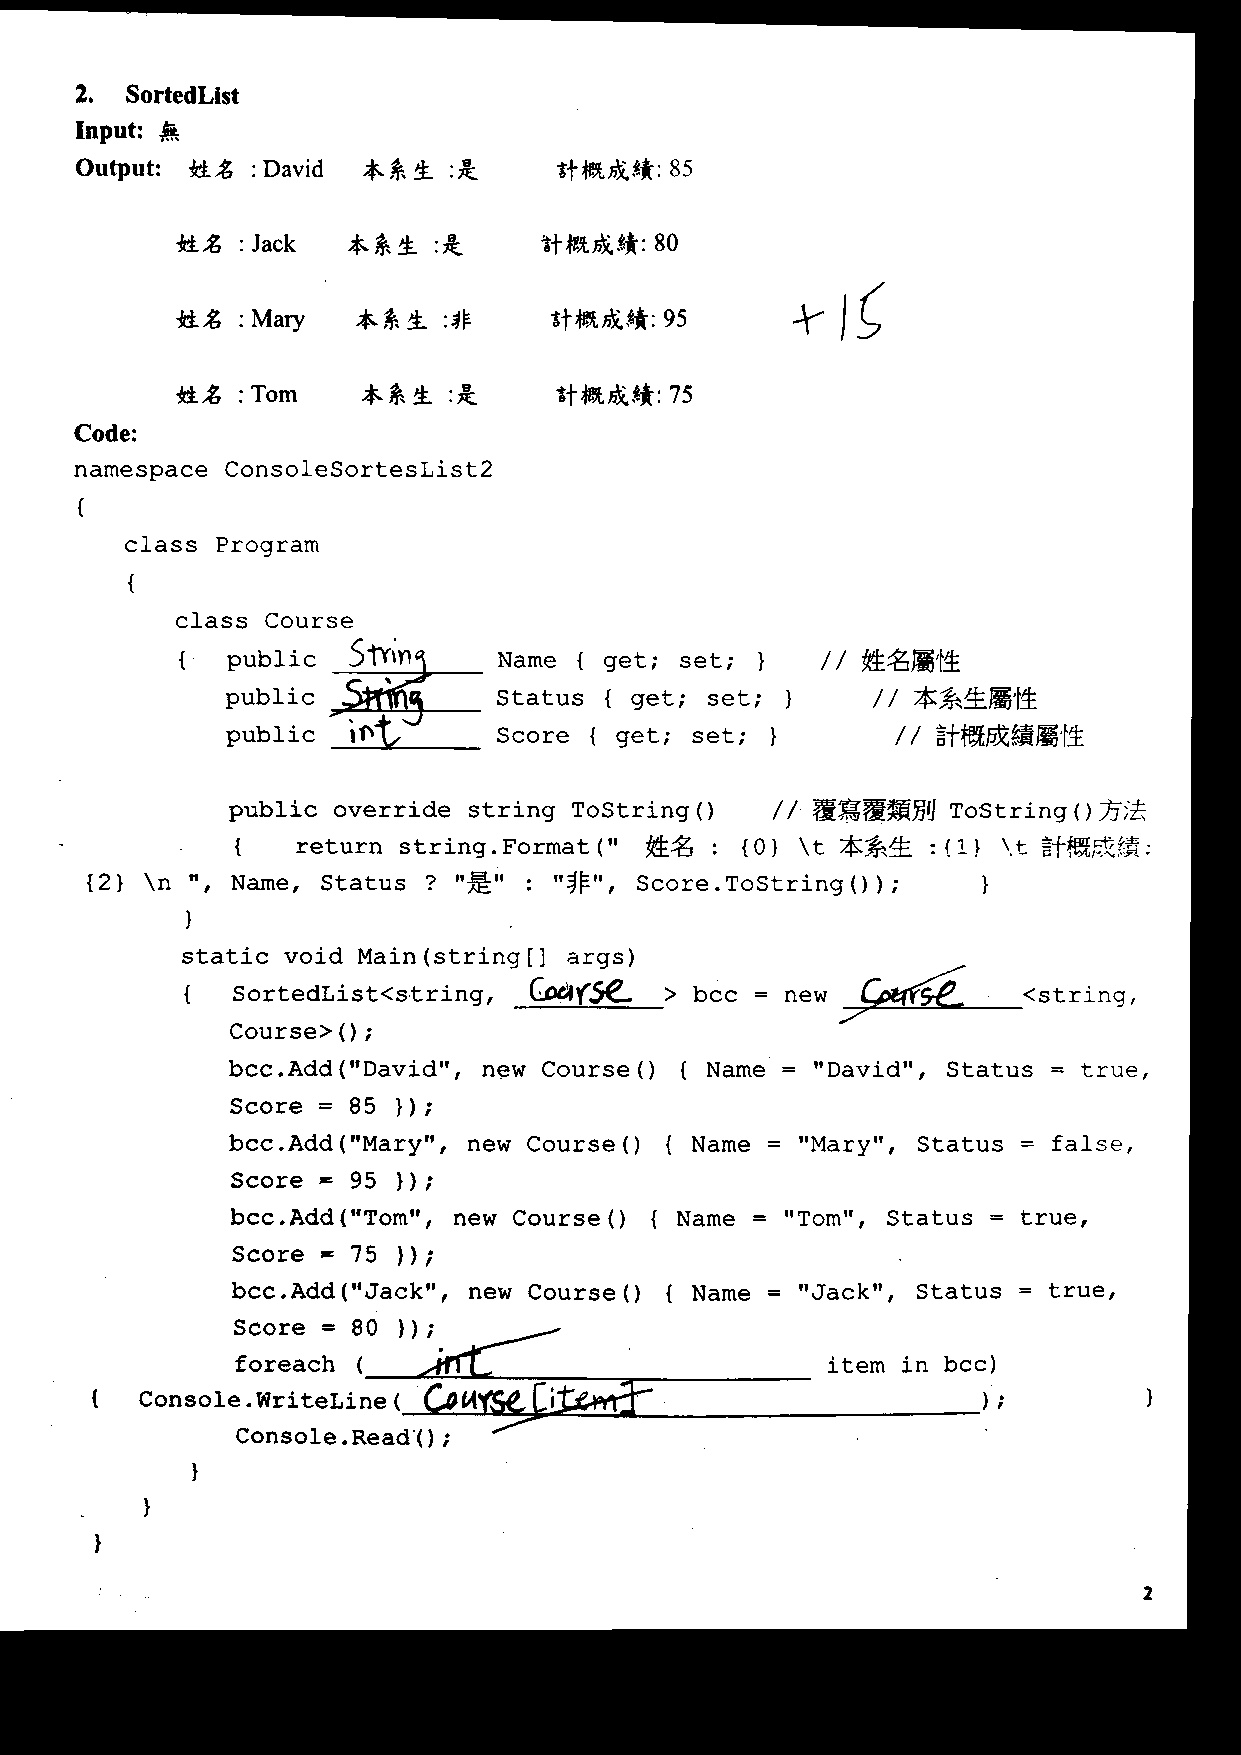 2. SortedList
Input: 無
Output: 姓名 : David 本系生 :是 計概成績: 85
姓名 : Jack 本系生 :是 計概成績: 80
姓名 : Mary 本系生 :非 計概成績: 95
+15
姓名 : Tom 本系生 :是 計概成績: 75
Code:
namespace ConsoleSortesList2
{
class Program
{
class Course
{ public String Name { get; set; } // 姓名屬性
public String Status { get; set; } // 本系生屬性
public int Score { get; set; } // 計概成績屬性
public override string ToString() // 覆寫覆類別 ToString()方法
{ return string.Format(" 姓名 : {0} \t 本系生 :{1} \t 計概成績:
{2} \n ", Name, Status ? "是" : "非", Score.ToString()); }
}
static void Main(string[] args)
{ SortedList<string, Course > bcc = new Course <string,
Course>();
bcc.Add("David", new Course() { Name = "David", Status = true,
Score = 85 });
bcc.Add("Mary", new Course() { Name = "Mary", Status = false,
Score = 95 });
bcc.Add("Tom", new Course() { Name = "Tom", Status = true,
Score = 75 });
bcc.Add("Jack", new Course() { Name = "Jack", Status = true,
Score = 80 });
foreach ( int item in bcc)
{ Console.WriteLine( Course[item] ); }
Console.Read();
}
}
}
2